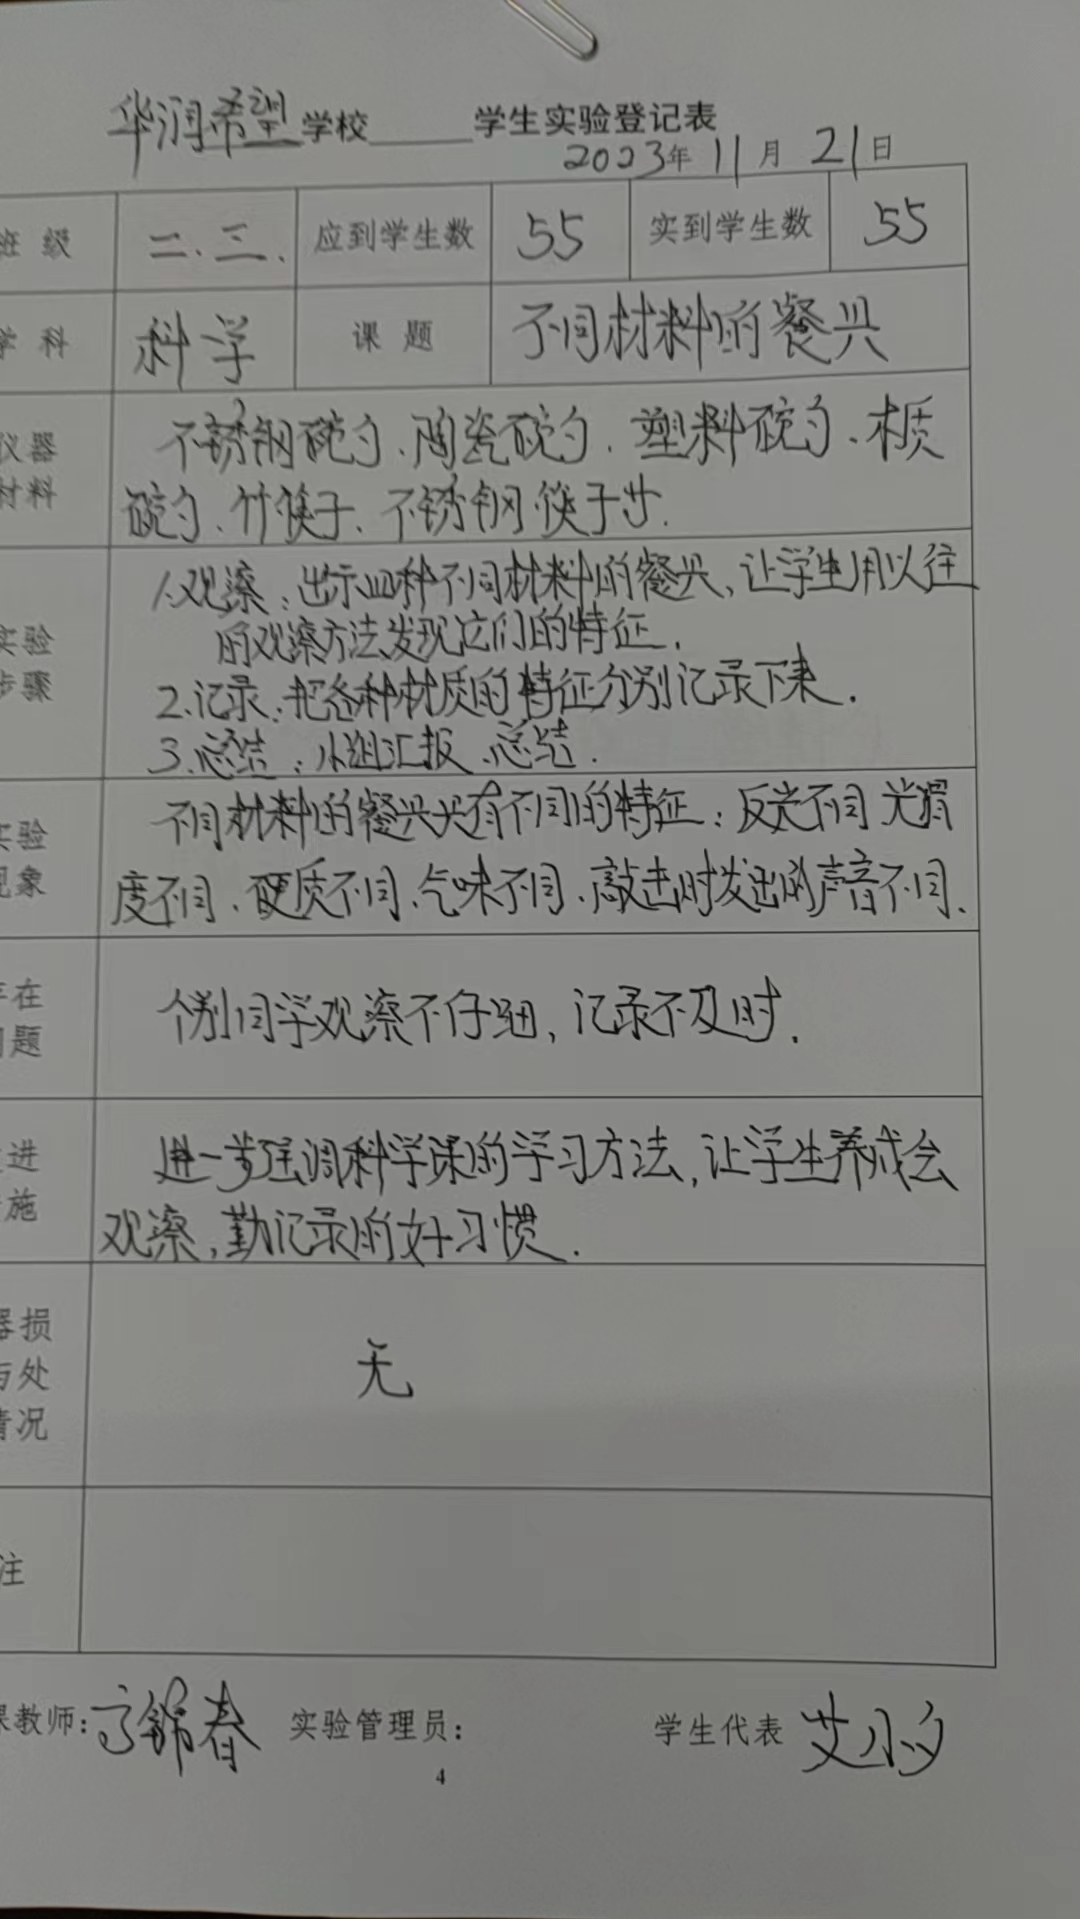 华润希望学校_____学生实验登记表
2023年 11月 21日
班 级 二.三. 应到学生数 55 实到学生数 55
学 科 科学 课 题 不同材料的餐具
仪器 不锈钢碗勺、陶瓷碗勺、塑料碗勺、木质
材料 碗勺、竹筷子、不锈钢筷子等.
1.观察:出示四种不同材料的餐具,让学生用以往
实验 的观察方法发现它们的特征.
步骤 2.记录:把各种材质的特征分别记录下来.
3.总结:小组汇报、总结.
实验 不同材料的餐具具有不同的特征:反光不同 光滑
现象 度不同、硬质不同、气味不同、敲击时发出的声音不同、
存在 个别同学观察不仔细,记录不及时.
问题
进 进一步强调科学课的学习方法,让学生养成会
施 观察,勤记录的好习惯.
器损
与处 无
情况
注
课教师:高锦春 实验管理员: 学生代表 艾小夕
4